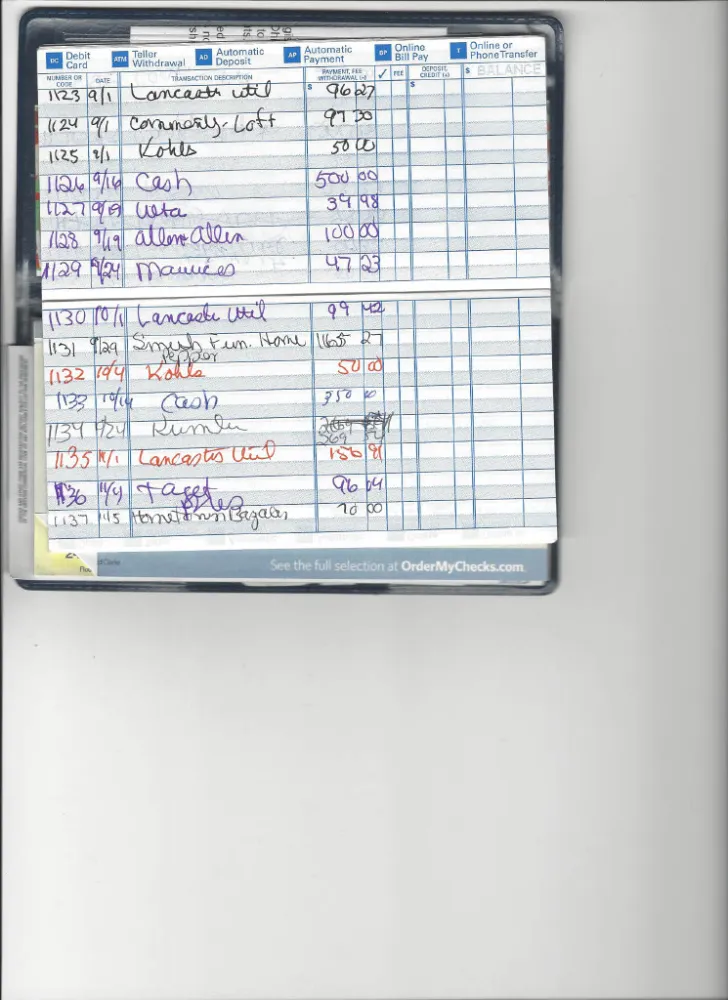 DC Debit Card ATM Teller Withdrawal AD Automatic Deposit AP Automatic Payment BP Online Bill Pay T Online or Phone Transfer
NUMBER OR CODE DATE TRANSACTION DESCRIPTION PAYMENT, FEE WITHDRAWAL (-) ✓ FEE DEPOSIT, CREDIT (+) $ BALANCE
1123 9/1 Lancaster Util $ 96 27 $
1124 9/1 Loft 97 30
1125 9/1 Kohls 50 00
1126 9/16 Cash 500 00
1127 Ulta 39 98
1128 9/19 Allen Allen 100 00
1129 9/24 Maurices 47 23
1130 10/1 Lancaste Util 99 42
1131 9/29 Fun. Home 1165 27
Pepper
1132 10/4 Kohls 50 00
1133 10/14 Cash 350 00
1134 569
1135 11/1 Lancaster Util 156 91
1136 11/4 Taget 96 04
1137 11/5 Hometown Bazaler 70 00
See the full selection at OrderMyChecks.com.